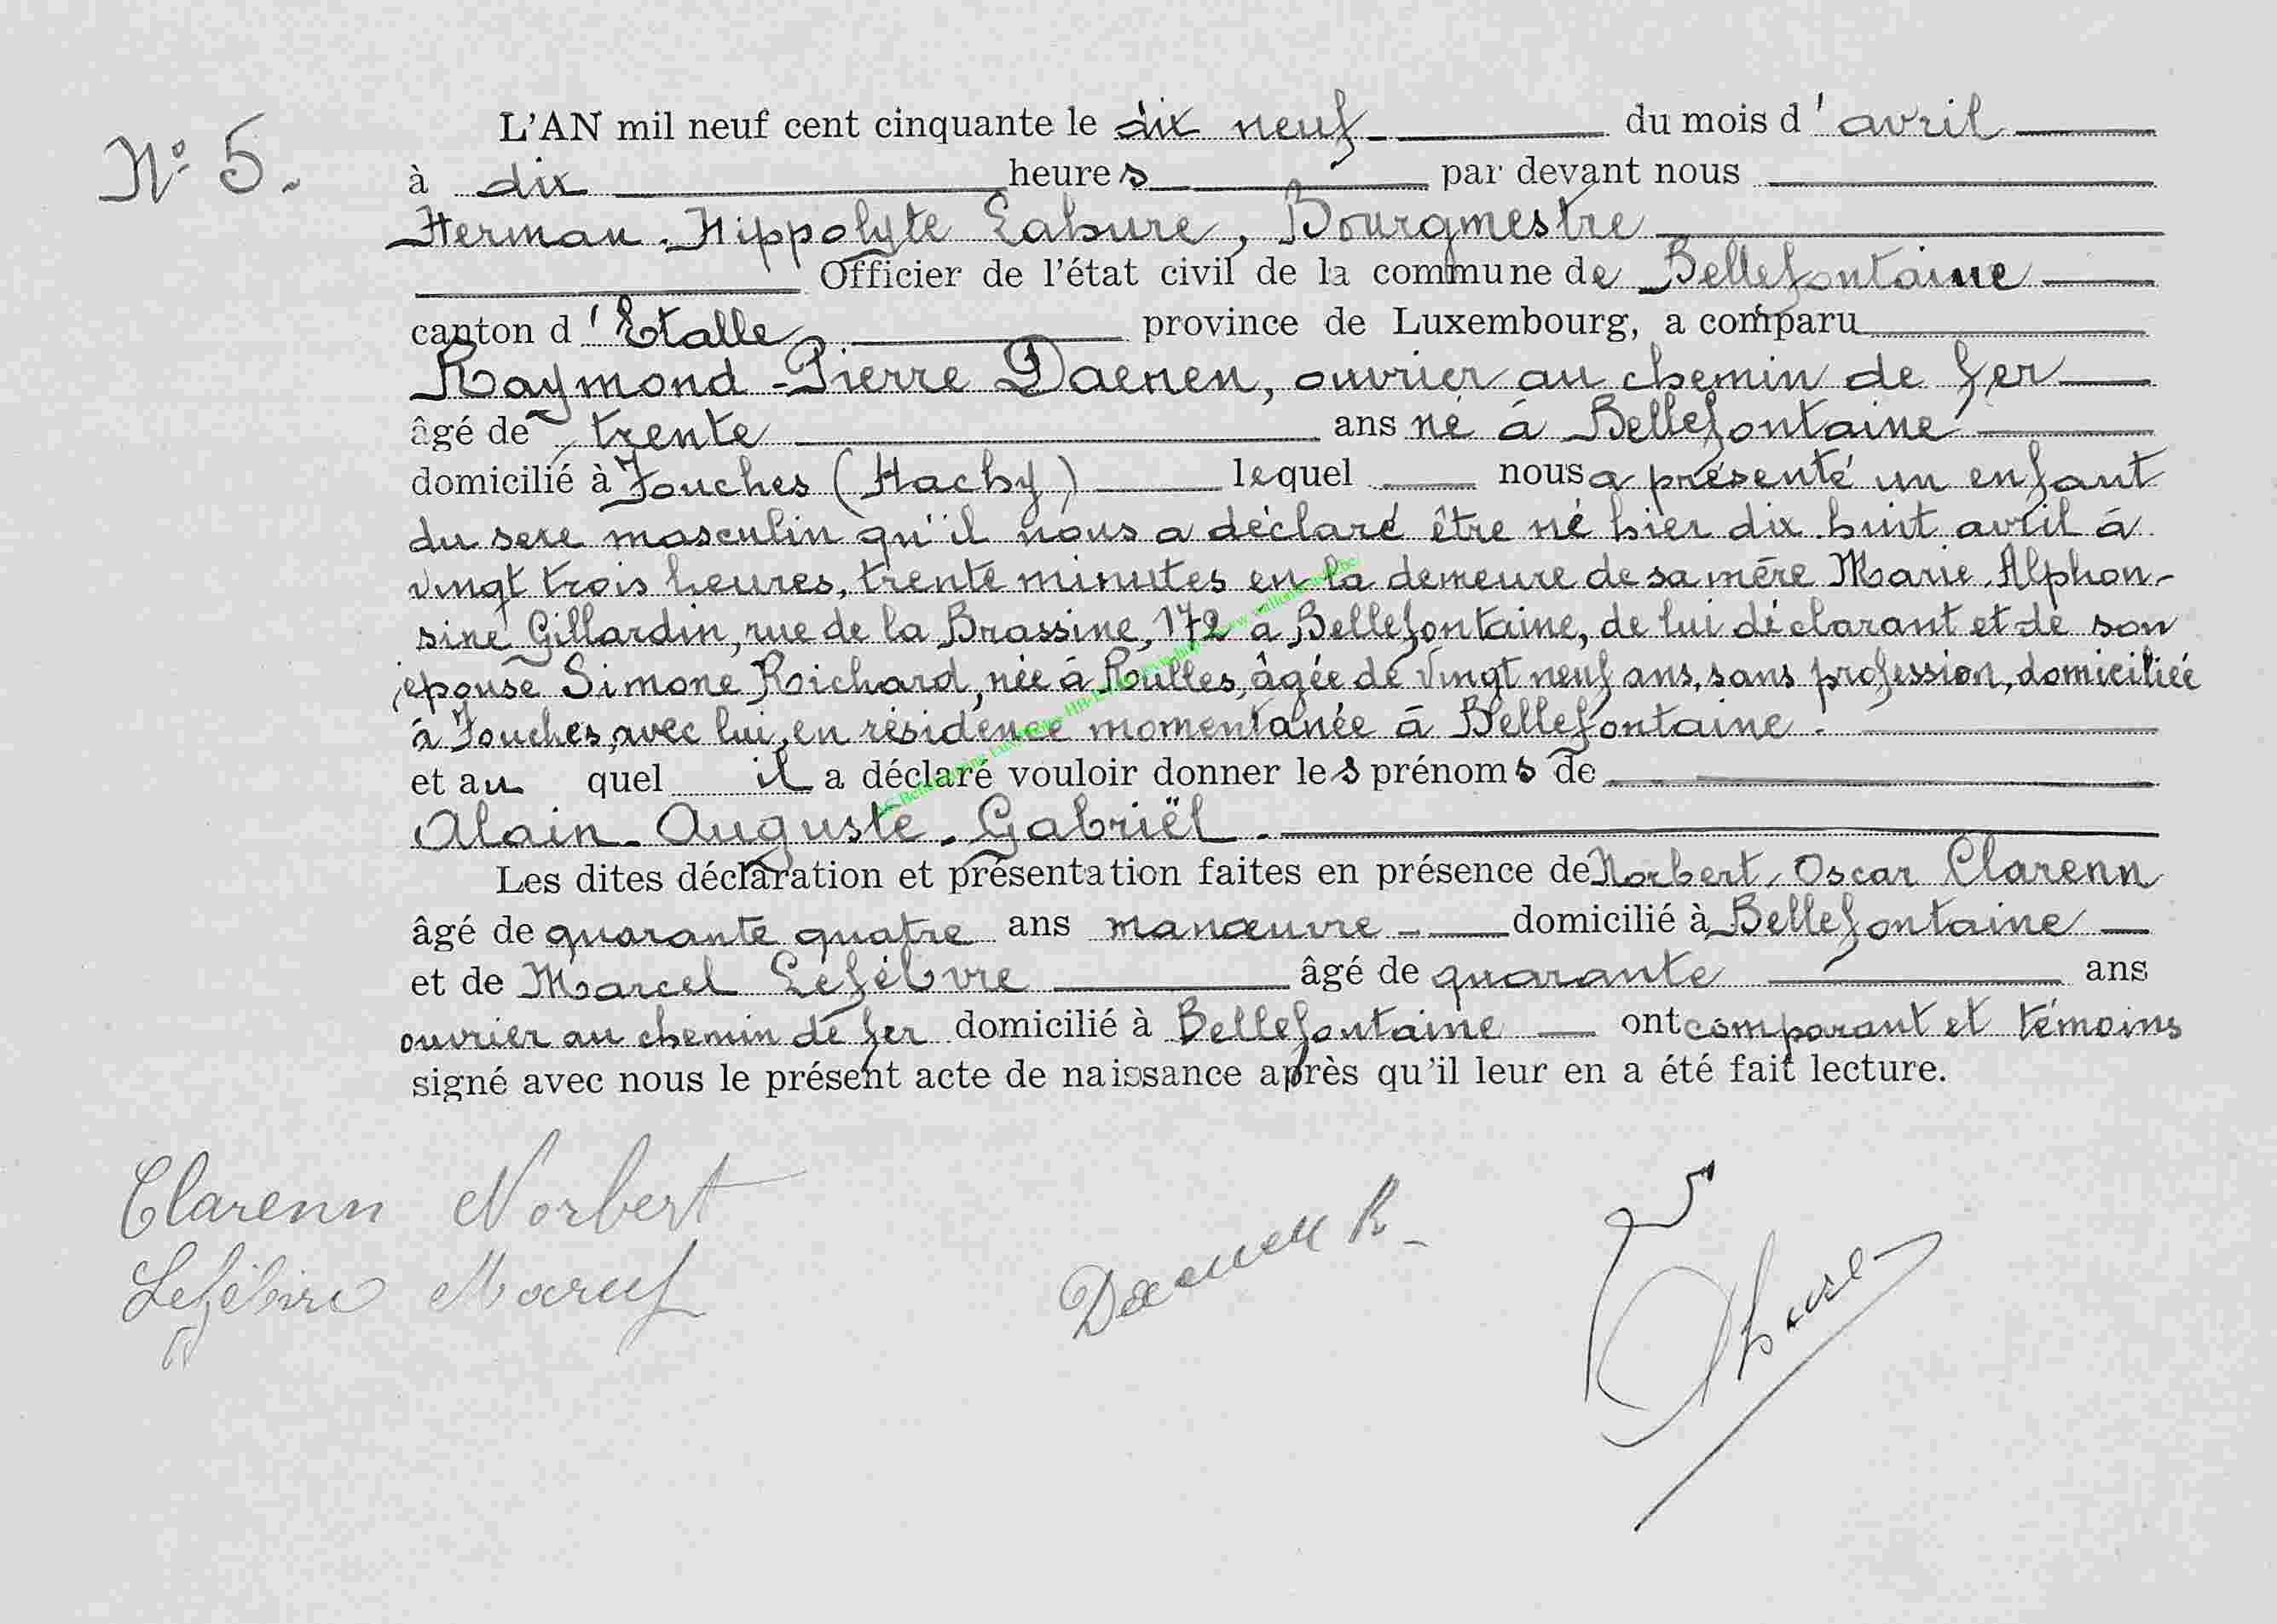 N° 5.
L'AN mil neuf cent cinquante le dix neuf du mois d'avril
à dix heures par devant nous
Herman-Hippolyte Labure, Bourgmestre
Officier de l'état civil de la commune de Bellefontaine
canton d'Etalle province de Luxembourg, a comparu
Raymond-Pierre Daenen, ouvrier au chemin de fer
âgé de trente ans né à Bellefontaine
domicilié à Fouches (Hachy) lequel nous a présenté un enfant
du sexe masculin qu'il nous a déclaré être né hier dix-huit avril à
vingt trois heures, trente minutes en la demeure de sa mère Marie-Alphon-
sine Gillardin, rue de la Brassine, 172 à Bellefontaine, de lui déclarant et de son
épouse Simone Richard, née à Rulles, âgée de vingt neuf ans, sans profession, domiciliée
à Fouches, avec lui, en résidence momentanée à Bellefontaine.
et au quel il a déclaré vouloir donner les prénoms de
Alain-Auguste-Gabriël.
Les dites déclaration et présentation faites en présence de Norbert-Oscar Clarenn
âgé de quarante quatre ans manœuvre domicilié à Bellefontaine
et de Marcel Lefèbvre âgé de quarante ans
ouvrier au chemin de fer domicilié à Bellefontaine ont comparant et témoins
signé avec nous le présent acte de naissance après qu'il leur en a été fait lecture.
Clarenn Norbert
Lefèbvre Marcel
Daenen R.